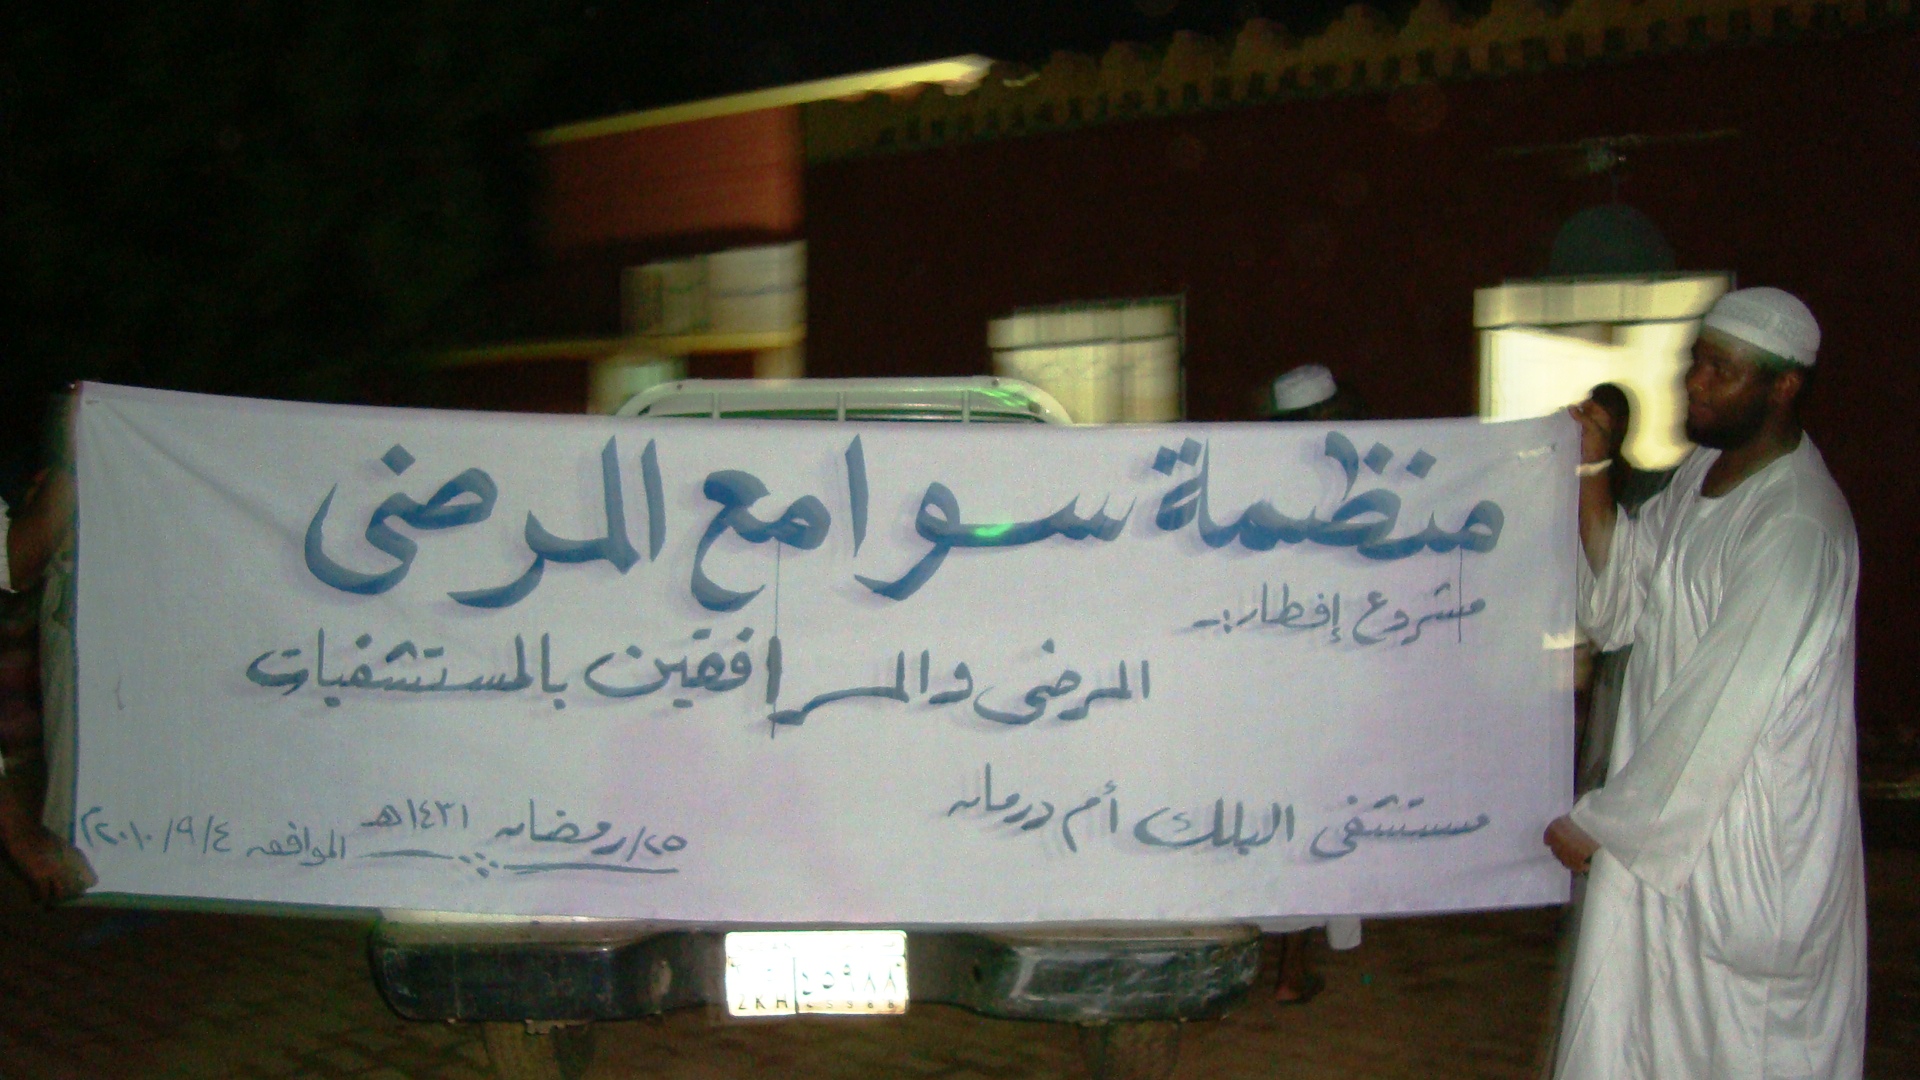 منظمة سوا مع المرضى
مشروع إفطار:-
المرضى والمرافقين بالمستشفيات
مستشفى البلك أم درمان
٢٥/رمضان ١٤٣١هـ الموافق ٢٠١٠/٩/٤م
٤٥٩٨٨
2KH